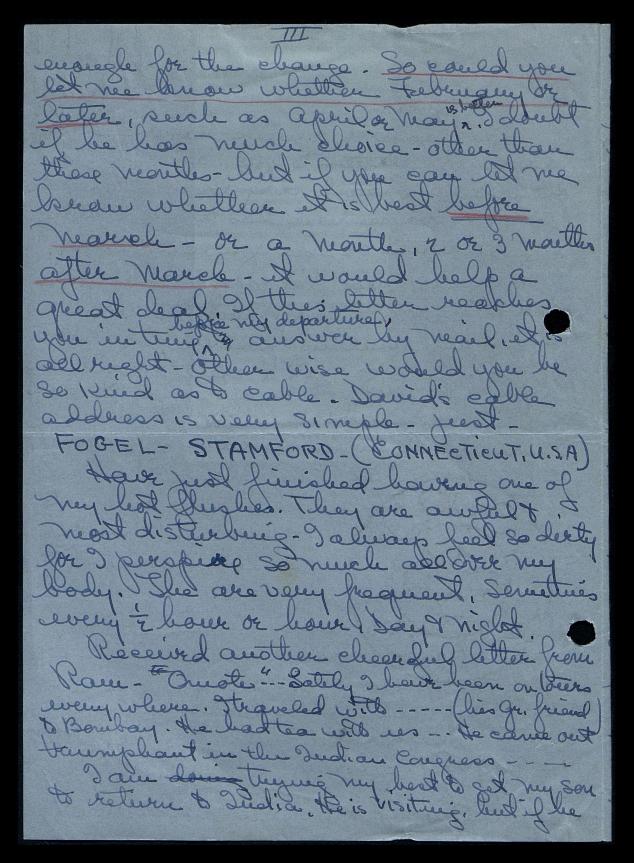 III
enough for the change. So could you
let me know whether February or
later, such as April or May is better. I doubt
if he has much choice - other than
these months - but if you can let me
know whether it is best before
March - or a month, 2 or 3 months
after March - it would help a
great deal. If this letter reaches
you in time before my departure, answer by mail, it is
all right - Other wise would you be
so kind as to cable. David's cable
address is very simple - just -
FOGEL - STAMFORD - (CONNECTICUT, U.S.A)
Have just finished having one of
my hot flushes. They are awful &
most disturbing - I always feel so dirty
for I perspire so much all over my
body. The are very frequent, sometimes
every ½ hour or hour, Day & Night.
Received another cheerful letter from
Ram - "Quote" -- Lately I have been on tours
every where. I traveled with ----- (his gr. friend)
to Bombay. He had tea with us --- He came out
triumphant in the Indian Congress - - - -
I am doing trying my best to get my son
to return to India. He is visiting, but if he